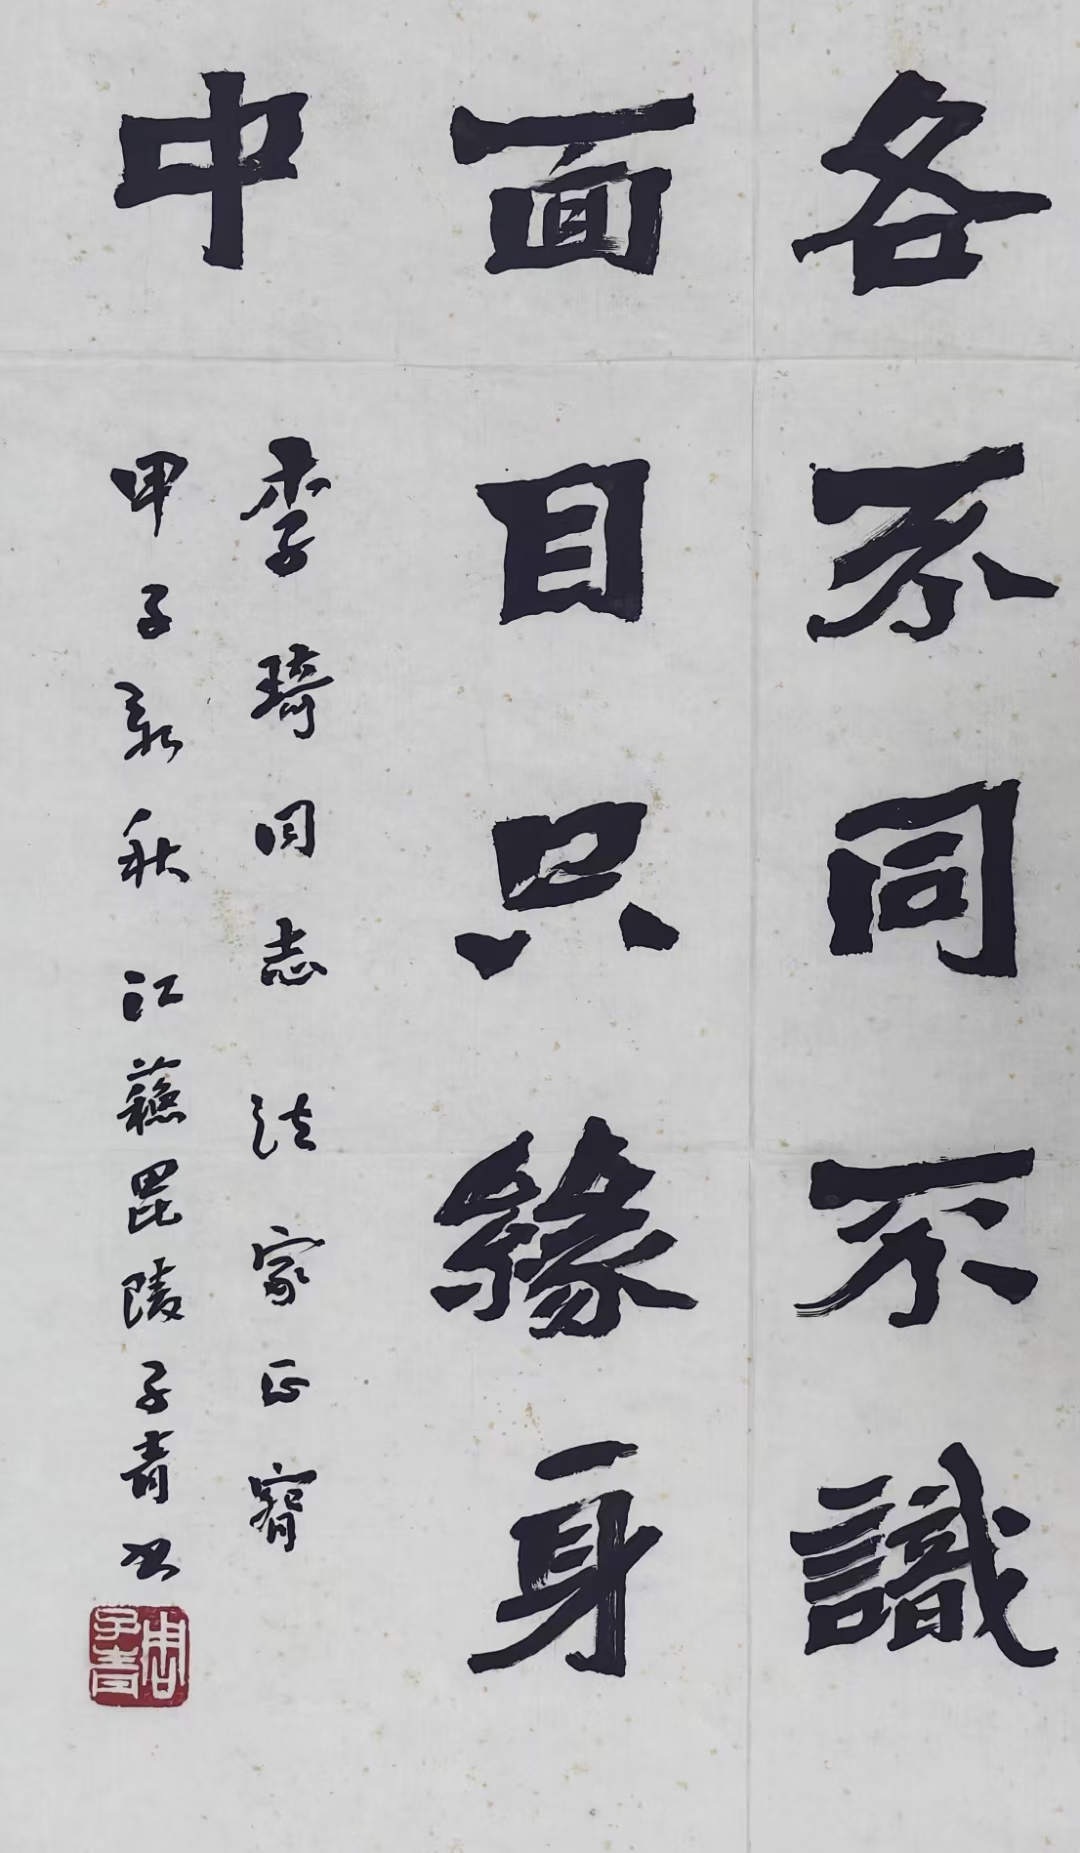 各不同不識
面目只緣身
中
李琦同志 法家正
甲子 秋 江蘇毘陵子青書
周子青